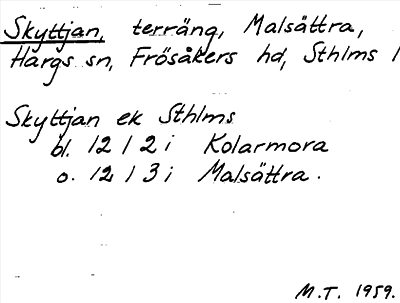 Skyttjan, terräng, Malsättra,
Hargs sn, Frösåkers hd, Sthlms l
Skyttjan ek Sthlms
bl. 12 1 2 i Kolarmora
o. 12 1 3 i Malsättra.
M.T. 1959.